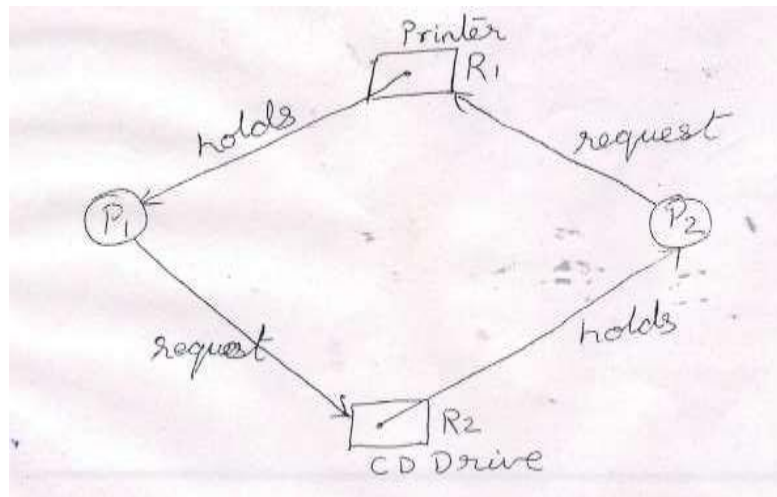 Printer
R1
holds
request
P1
P2
request
holds
R2
CD Drive